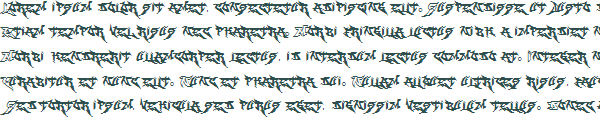 Lorem ipsum dolor sit amet, consectetur adipiscing elit. Suspendisse et justo
Etiam tempor vel risus nec pharetra. Morbi fringilla lectus nibh a imperdiet
Morbi hendrerit ullamcorper lectus, in interdum lectus commodo at. Integer
Curabitur et nunc elit. Nunc et pharetra dui. Nullam aliquet ultrices risus,
Sed tortor ipsum, vehicula sed purus eget, dignissim vestibulum tellus. Donec